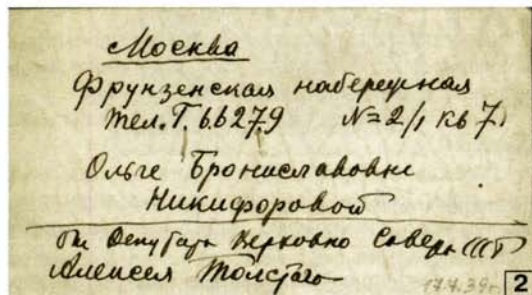 Москва
Фрунзенская набережная
тел. Г. 6.62.79 N=2/1 кв 7
Ольге Брониславовне
Никифоровой
от Депутата Верховно Совета СССР
Алексея Толстого
17.4.39г.
2